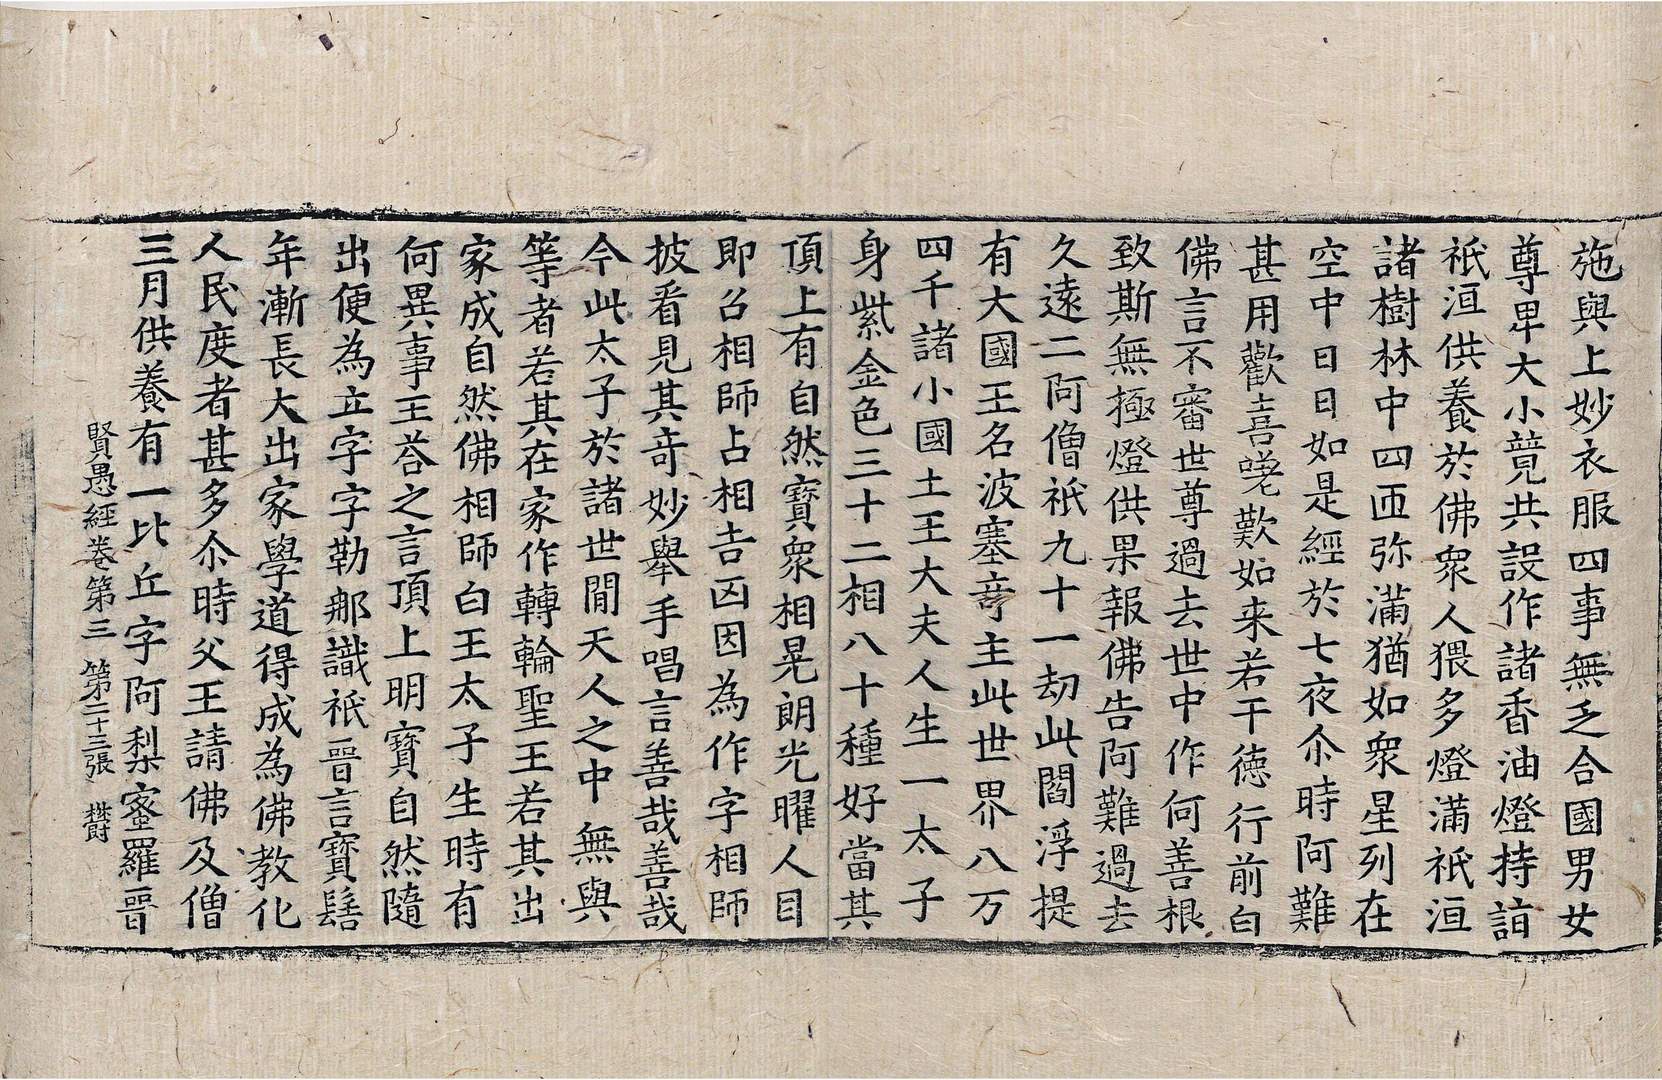 施與上妙衣服四事無乏合國男女
尊卑大小競共設作諸香油燈持詣
祇洹供養於佛衆人猥多燈滿祇洹
諸樹林中四匝弥滿猶如衆星列在
空中日日如是經於七夜尒時阿難
甚用歡喜嗟歎如来若干德行前白
佛言不審世尊過去世中作何善根
致斯無極燈供果報佛告阿難過去
久遠二阿僧祇九十一劫此閻浮提
有大國王名波塞竒主此世界八万
四千諸小國土王大夫人生一太子
身紫金色三十二相八十種好當其
頂上有自然寶衆相晃朗光曜人目
即召相師占相吉凶因為作字相師
披看見其竒妙舉手唱言善哉善哉
今此太子於諸世閒天人之中無與
等者若其在家作轉輪聖王若其出
家成自然佛相師白王太子生時有
何異事王荅之言頂上明寶自然隨
出便為立字字勒那識祇晉言寶髻
年漸長大出家學道得成為佛教化
人民度者甚多尒時父王請佛及僧
三月供養有一比丘字阿梨蜜羅晉
賢愚經卷第三 第二十三張 欎